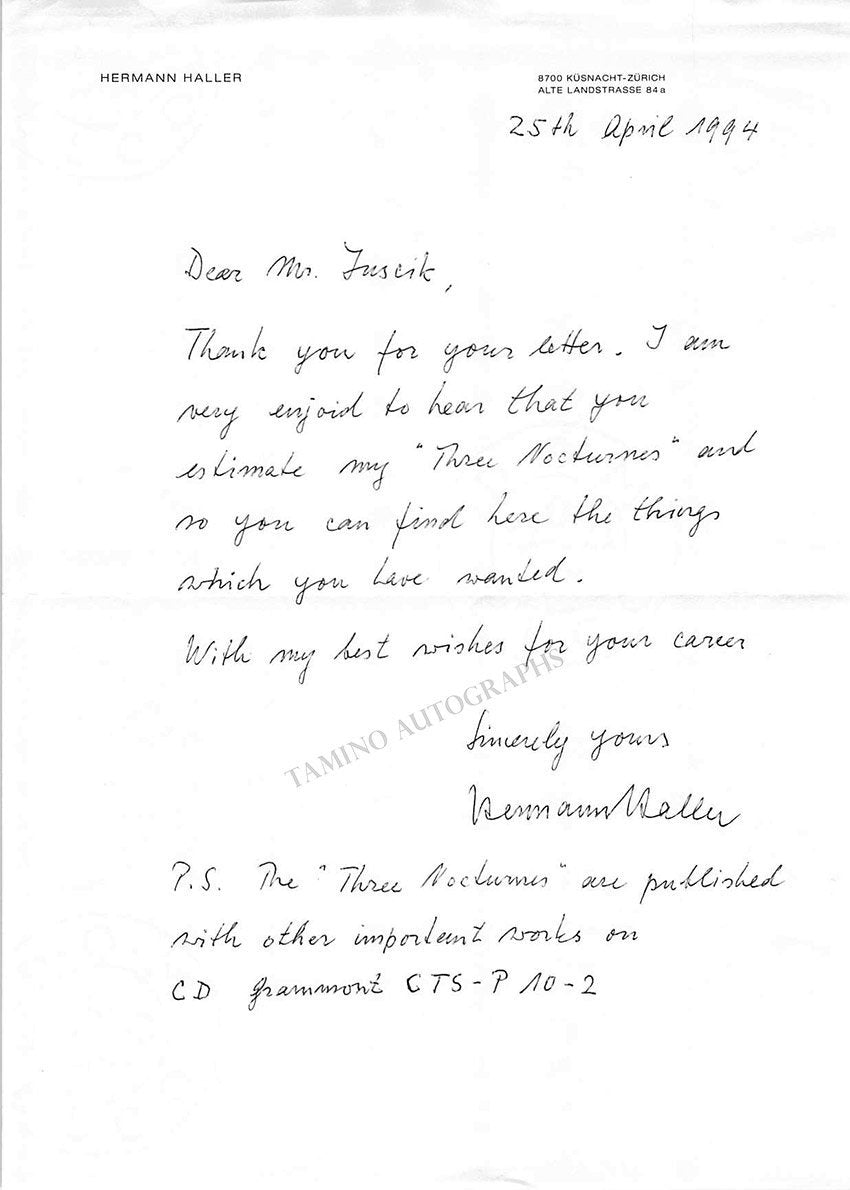 HERMANN HALLER
8700 KÜSNACHT-ZÜRICH
ALTE LANDSTRASSE 84a
25th April 1994
Dear Mr.
Thank you for your letter. I am
very enjoid to hear that you
estimate my "Three Nocturnes" and
so you can find here the things
which you have wanted.
With my best wishes for your career
TAMINO AUTOGRAPHS
Sincerely yours
Hermann Haller
P.S. The "Three Nocturnes" are published
with other important works on
CD grammont CTS-P 10-2